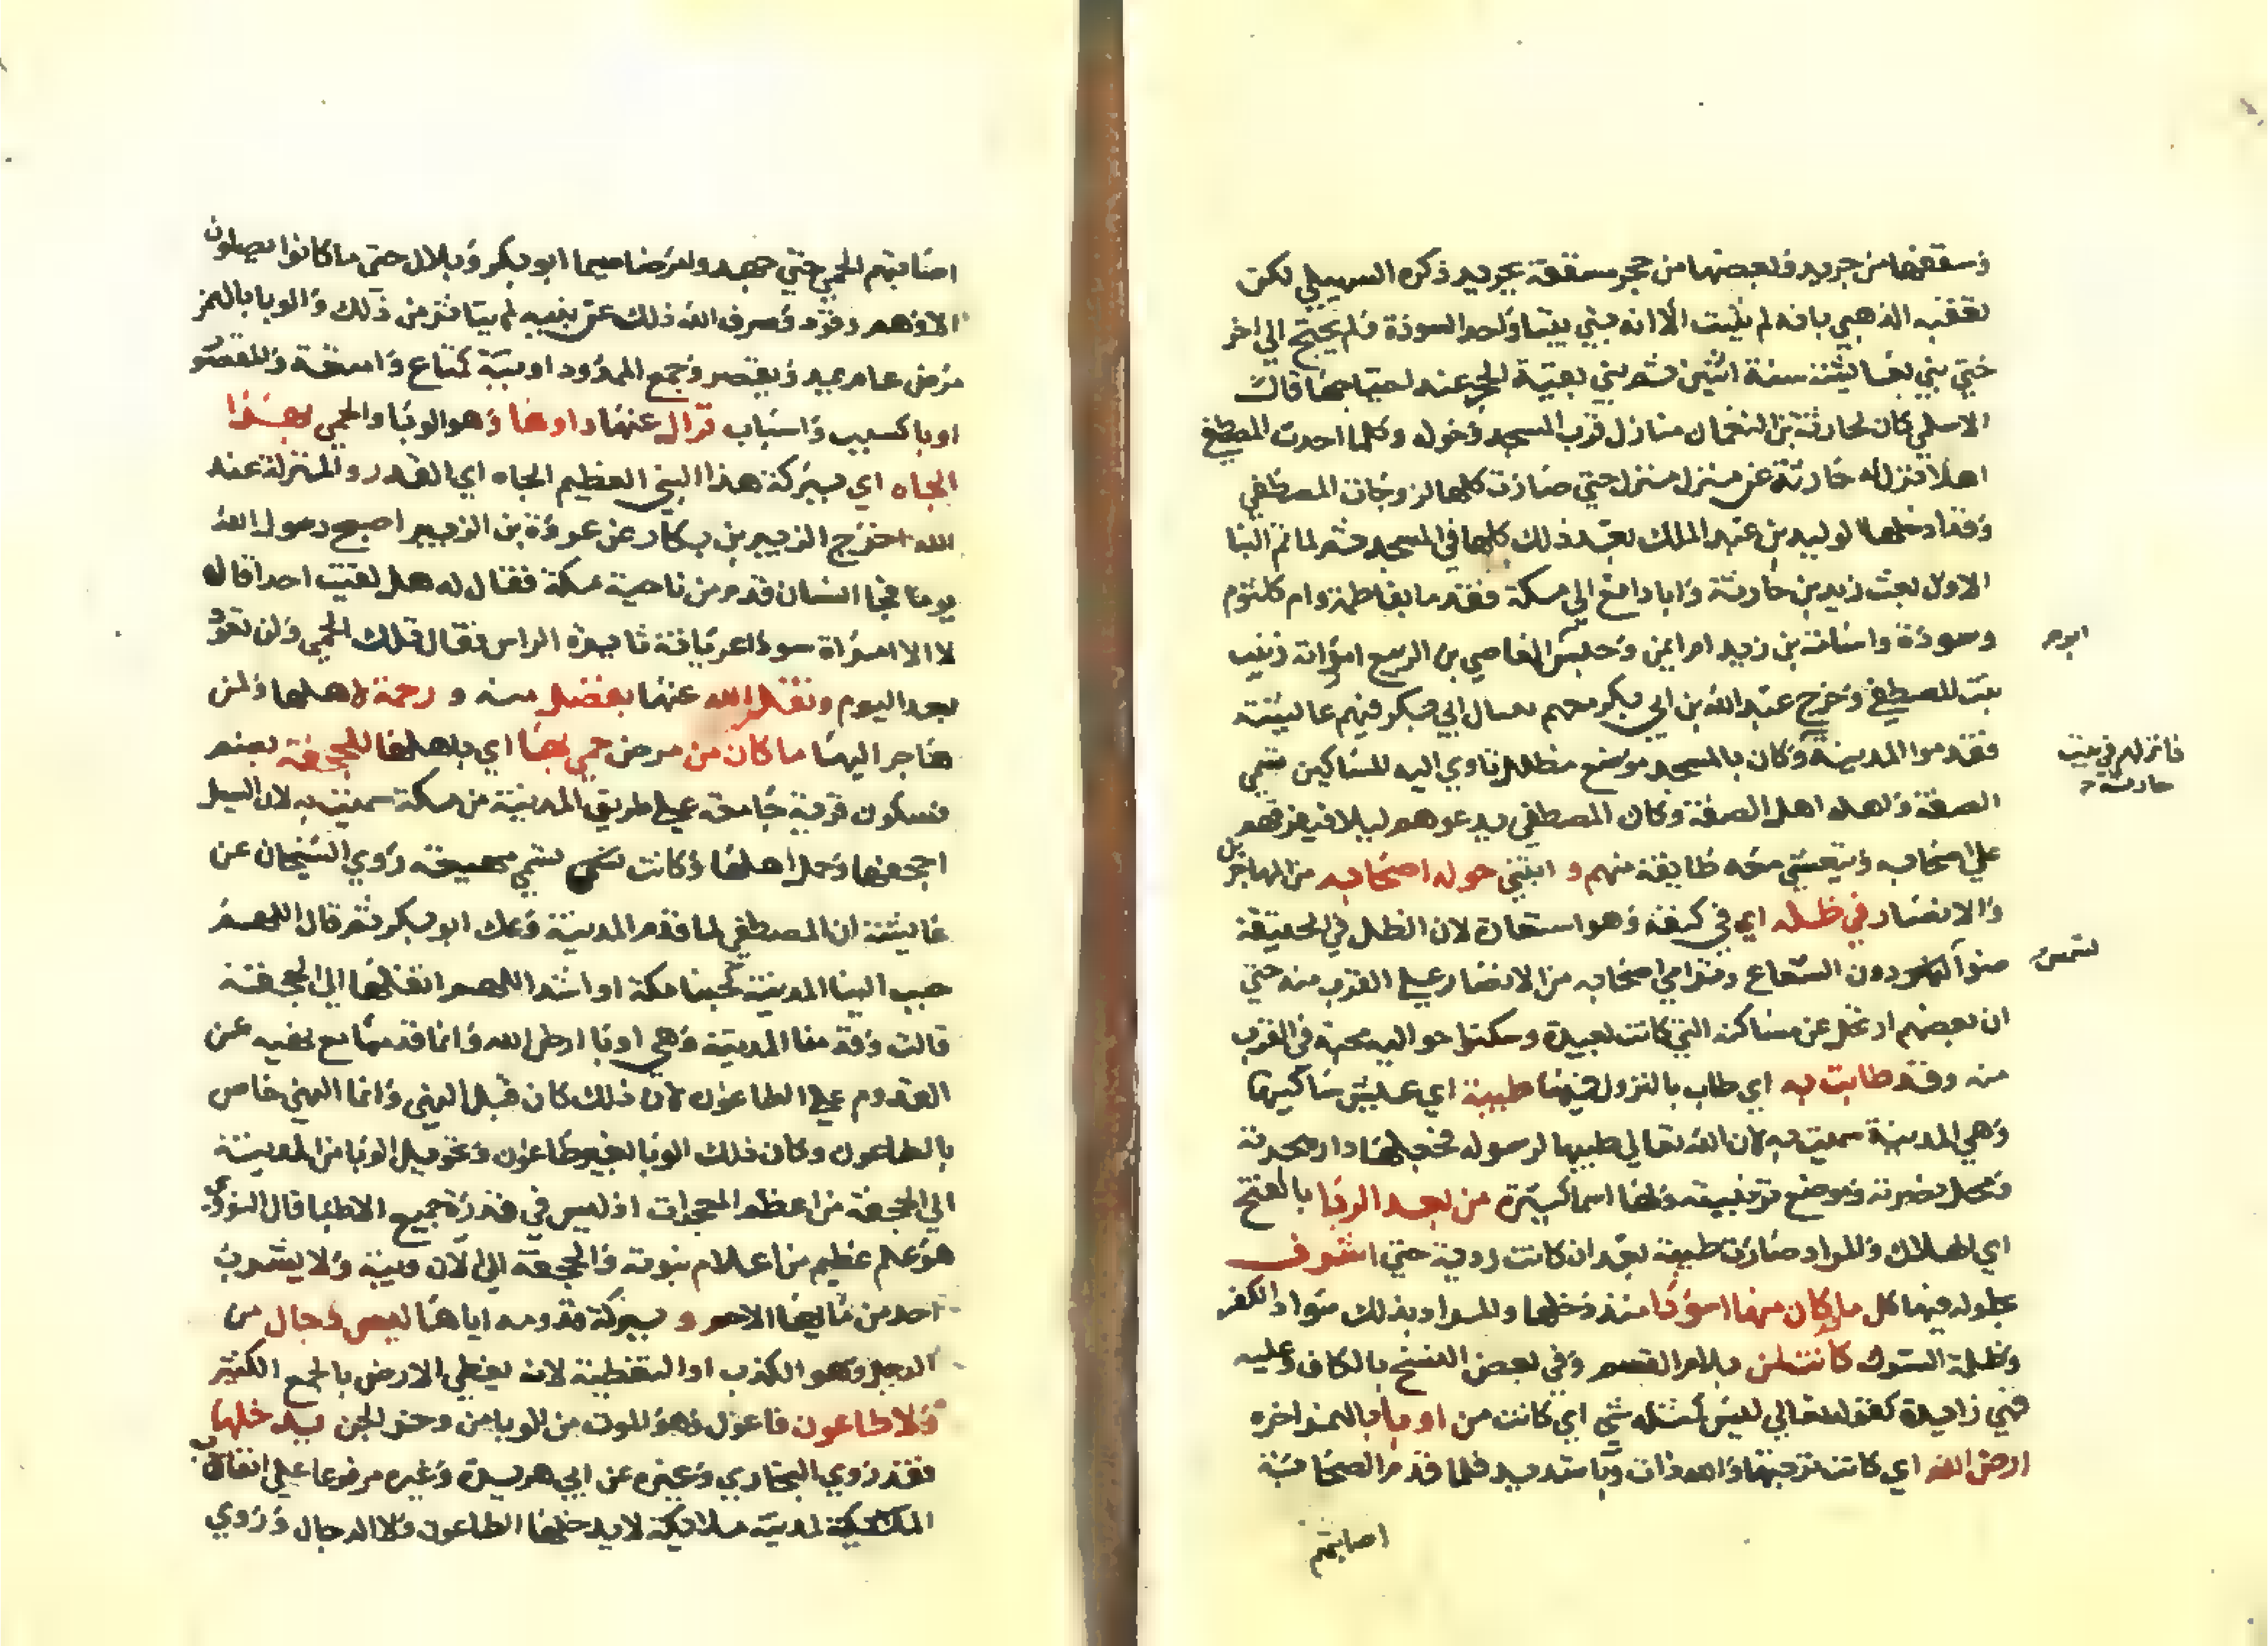 وسقفها من جريد وبعضها من حجر مسقفة بجريد ذكره السهيلي لكن
تعقبه الذهبي بانه لم يثبت الا انه بني بيتا واحدا لسودة فلم يحتج الي اخر
حتي بني بعايشة سنة اثنين ثم بني بقية الحجر عند احتياجها قال
الاسلمي كان لحارثة بن النعمان منازل قرب المسجد وحوله وكلما احدث المصطفي
اهلا نزل له حارثة عن منزل منزل حتي صارت كلها لزوجات المصطفي
وقد ادخلها الوليد بن عبد الملك بعد ذلك كلها في المسجد ثم لما تم البنا
الاول بعث زيد بن حارثة وابا رافع الي مكة فقدما بفاطمة وام كلثوم
وسودة واسامة بن زيد ام ايمن وحبس العاصي بن الربيع امراته زينب
ابوه
بنت المصطفي وخرج عبد الله بن ابي بكر معهم بعيال ابي بكر فيهم عايشة
فقدموا المدينة وكان بالمسجد موضع مظلل تاوي اليه المساكين سمي
فانزلهم في بيت
حارثة
الصفة واهله اهل الصفة وكان المصطفي يدعوهم ليلا فيفرقهم
علي اصحابه ويتعشي معه طايفة منهم و ابتني حوله اصحابه من المهاجرين
والانصار في ظله اي في كنفه وهو استعارة لان الظل في الحقيقة
ضوء دون الشعاع وترامي اصحابه من الانصار علي القرب منه حتي
لشمس
ان بعضهم ارتحل عن مساكنه التي كانت بعيدة وسكنوا حواليه محبة في القرب
منه وقد طابت به اي طاب بالنزول فيها طيبة اي عيش ساكنيها
وهي المدينة سميت به لان الله تعالي طيبها لرسوله فجعلها دار هجرته
ومحل نصرته وموضع تربته ولها اسما كثيرة من بعد الردا بالفتح
اي الهلاك والمراد صارت طيبة بعد ان كانت ردية حتي اشرف
بحلوله فيها كل ما كان منها اسودا منذ دخلها والمراد بذلك سواد الكفر
وظلمة الشرك كانت لمن بلام القسم وفي بعض النسخ بالكاف وعليه
فهي زايدة كقوله تعالي ليس كمثله شي اي كانت من اوبا بالهمز اخره
ارض الله اي كانت تربتها واهوات وبا شديد فلما قدم الصحابة
اصابتهم
اصابتهم الحمي حتي جهدوا مرضا سيما ابو بكر وبلال حتي ما كانوا يصلون
الا وهم رقود وصرف الله ذلك عن نبيه لم يتاثر من ذلك والوبا بالهمز
مرض عام يمد ويقصر وجمع الممدود اوبية كمتاع وامتعة والمقصور
اوبا كسبب واسباب فزال عنها داوها وهو الوبا والحمي بهذا
الجاه اي ببركة هذا النبي العظيم الجاه اي القدر والمنزلة عند
الله اخرج الزبير بن بكار عن عروة بن الزبير اصبح رسول الله
يوما فجا انسان قدم من ناحية مكة فقال له هل لقيت احدا قال
لا الا امراة سودا عريانة ثايرة الراس فقال تلك الحمي ولن تعود
بعد اليوم ونقل الله عنها بفضل منه و رحمة لاهلها ولمن
هاجر اليها ما كان من مرض حمي بها اي باهلها للجحفة بضم
فسكون قرية جامعة علي طريق المدينة من مكة سميت به لان السيل
اجحفها وحمل اهلها وكانت تسمي مهيعة روي الشيخان عن
عايشة ان المصطفي لما قدم المدينة وعك ابو بكر ثم قال اللهم
حبب الينا المدينة كحبنا مكة او اشد اللهم انقلها الي الجحفة
قالت وقدمنا المدينة وهي اوبا ارض الله وانما قدمها مع نهيه عن
القدوم علي الطاعون لان ذلك كان قبل النهي وانما النهي خاص
بالطاعون وكان ذلك الوبا بغير طاعون وتحويل الوبا من المدينة
الي الجحفة من اعظم المعجزات اذ ليس في قدرة جميع الاطبا قال النووي
هو علم عظيم من اعلام نبوته والجحفة الي الان وبية ولا يشرب
احد من مايها الا حم و ببركة قدومه اياها ليس دجال من
الدجل وهو الكذب او التغطية لانه يغطي الارض بالجمع الكثير
ولا طاعون فاعول وهو الموت من الوبا من وخز الجن يدخلها
فقد روي البخاري وغيره عن ابي هريرة وغيره مرفوعا علي انقاب
المدينة ملايكة لا يدخلها الطاعون ولا الدجال وروي